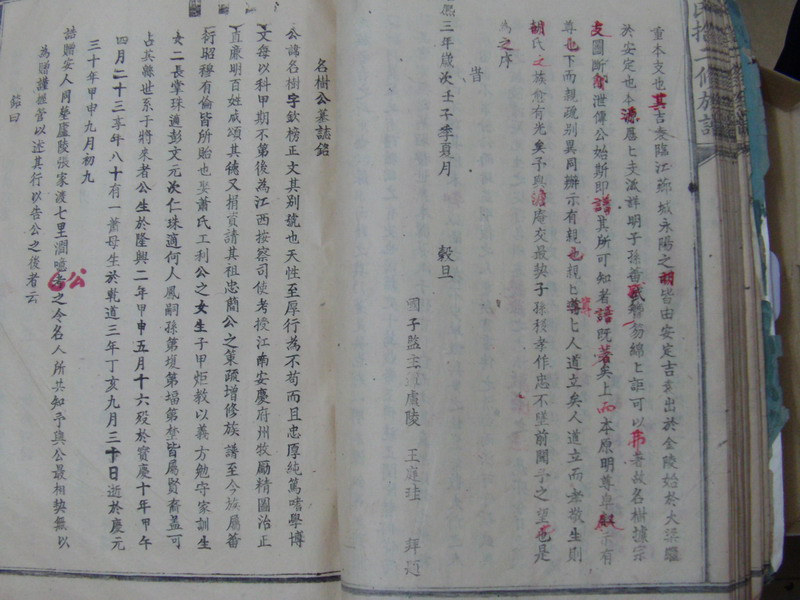 重本支也其吉袁臨江薌城永陽之胡皆由安定吉袁出於金陵始於大
於安定也本源上支派詳明子孫蕃簪笏綿上詎可以著故名樹據宗
支圖斷泄傳公始斯即譜其所可知者語既著矣上而本原明尊示有
尊也下而親疏別異同辦示有親也親上尊上人道立矣人道立而孝敬生則
胡氏之族愈有光矣予與澹庵交最契子孫移孝作忠不墜前聞予之望也是
為之序
旹
熙三年歲次壬子季夏月 穀旦
國子監主廬陵 王庭珪 拜題
名樹公墓誌銘
公諱名樹字欽榜正文其別號也天性至厚行為不苟而且忠厚純篤嗜學博
文每以科甲期不第後為江西按察司使考授江南安慶府州牧勵精圖治正
直廉明百姓咸頌其德又捐資請其祖忠簡公之葉蹤增修族譜至今族屬蕃
衍昭穆有倫皆所貽也娶蕭氏工利公之女生子甲炬教以義方勉守家訓生
女二長掌珠適彭文元次仁珠適何人鳳嗣孫第埈第塭第埜皆屬賢裔蓋可
占其縣世系于將來者公生於隆興二年甲申五月十六歿於寶慶十年甲午
四月二十三享年八十有一蕭母生於乾道三年丁亥九月三十日逝於慶元
三十年甲申九月初九
誥贈安人同塋廬陵張家渡七里澗噫公之令名人所共知予與公最相契無以
為贈謹摭管以述其行以告公之後者云
銘曰
二修族譜